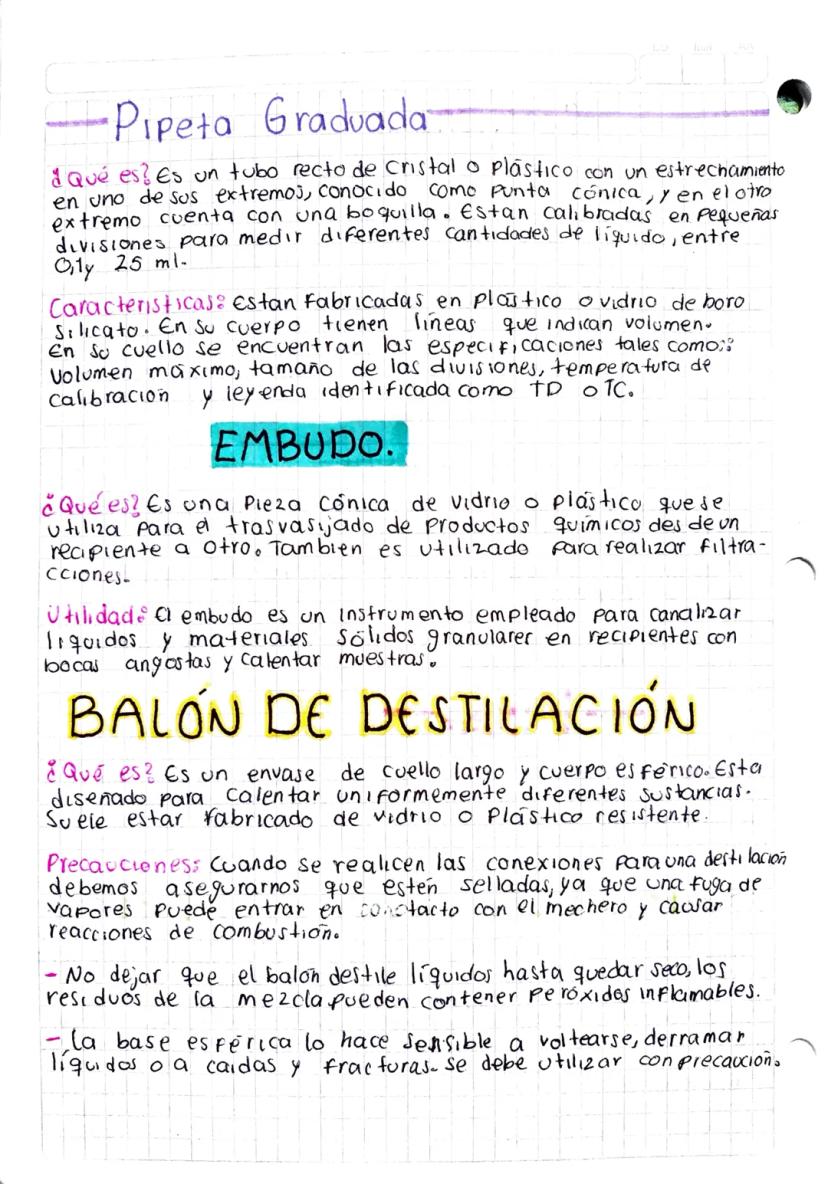 Pipeta Graduada
¿Qué es? Es un tubo recto de cristal o plástico con un estrechamiento
en uno de sus extremos, conocido como punta cónica, y en el otro
extremo cuenta con una boquilla. Estan calibradas en pequeñas
divisiones para medir diferentes cantidades de líquido, entre
0,1 y 25 ml.
Caracteristicas: Estan fabricadas en plástico o vidrio de boro
silicato. En su cuerpo tienen líneas que indican volumen.
En su cuello se encuentran las especificaciones tales como:
Volumen máximo, tamaño de las divisiones, temperatura de
calibración y leyenda identificada como TD o TC.
EMBUDO.
¿Qué es? Es una pieza cónica de vidrio o plástico que se
utiliza para el trasvasijado de productos químicos desde un
recipiente a otro. Tambien es utilizado para realizar filtra-
cciones.
Utilidad: El embudo es un instrumento empleado para canalizar
liquidos y materiales sólidos granularer en recipientes con
bocas angostas y calentar muestras.
BALÓN DE DESTILACIÓN
¿Qué es? Es un envase de cuello largo y cuerpo esférico. Esta
diseñado para calentar uniformemente diferentes sustancias.
Suele estar fabricado de vidrio o plástico resistente.
Precauciones: Cuando se realicen las conexiones para una destilación
debemos asegurarnos que estén selladas, ya que una fuga de
vapores puede entrar en contacto con el mechero y causar
reacciones de combustión.
- No dejar que el balón destile líquidos hasta quedar seco, los
residuos de la mezcla pueden contener peróxidos inflamables.
- La base esférica lo hace sensible a voltearse, derramar
líquidos o a caidas y fracturas. se debe utilizar con precaución.